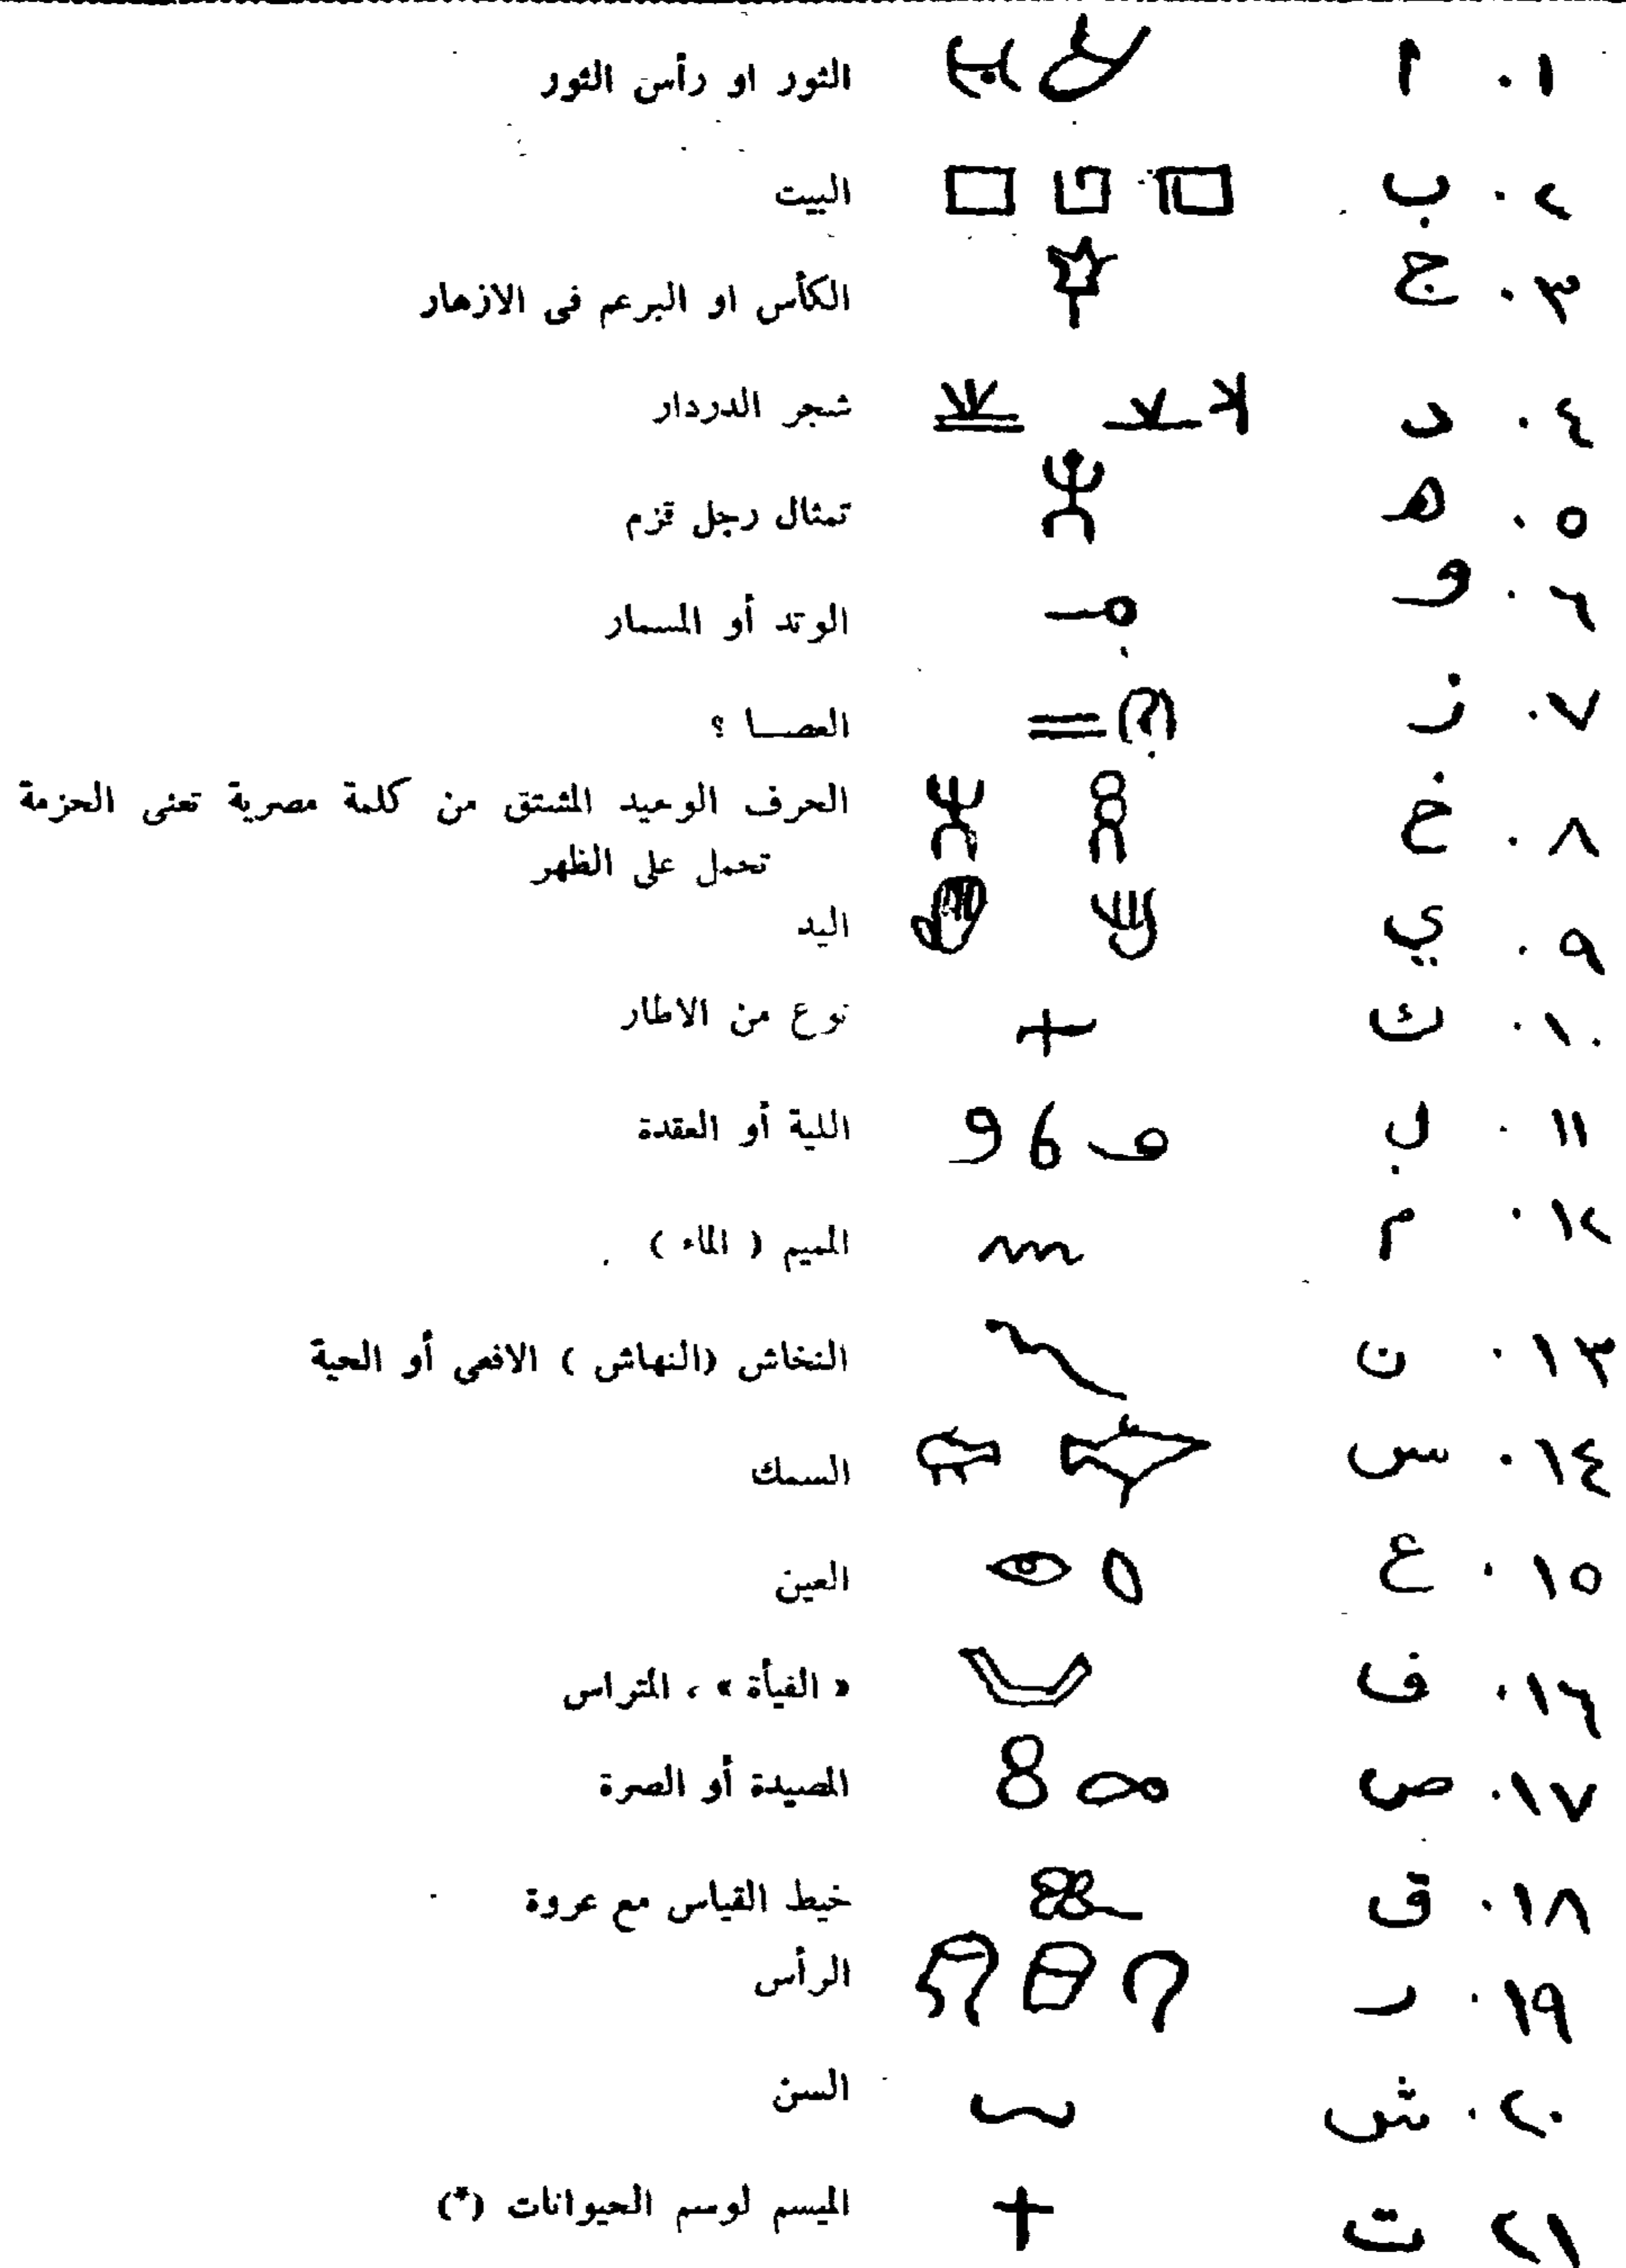 ١. ا الثور او رأس الثور
٢. ب البيت
٣. ج الكأس او البرعم فى الازهار
٤. د شجر الدردار
٥. ه تمثال رجل قزم
٦. و الوتد أو المسمار
٧. ز (؟) العصــا ؟
٨. خ الحرف الوحيد المشتق من كلمة مصرية تعنى الحزمة
تحمل على الظهر
٩. ي اليد
١٠. ك نوع من الاطار
١١. ل اللية أو العقدة
١٢. م الميم ( الماء )
١٣. ن النخاش (النهاش ) الافعى أو الحية
١٤. س السمك
١٥. ع العين
١٦. ف « الفيأة » ، المتراس
١٧. ص المصيدة أو الصرة
١٨. ق خيط القياس مع عروة
١٩. ر الرأس
٢٠. ش السن
٢١ ت الميسم لوسم الحيوانات (*)